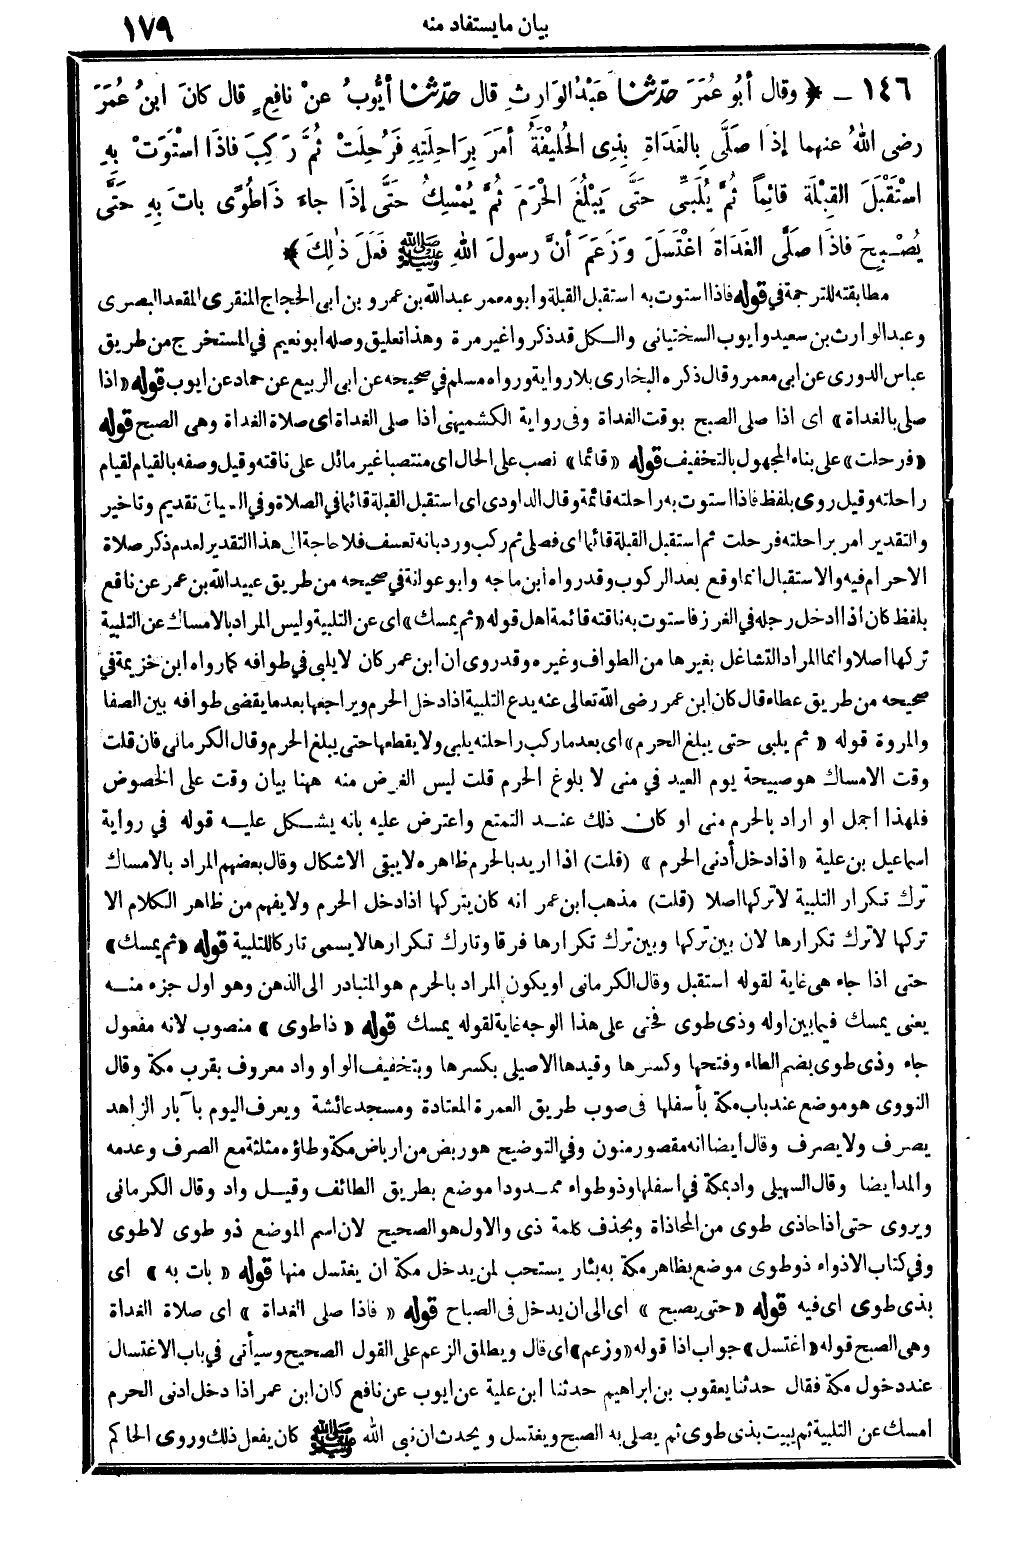 بيان ما يستفاد منه ١٧٩
١٤٦ ـ ﴿ وقال أبُو عُمَرَ حدّثنا عَبْدُ الوَارِثِ قال حدّثنا أيُّوبُ عنْ نافِعٍ قال كانَ ابنُ عُمَرَ
رضى اللهُ عنهما إذَا صَلَّى بِالغَدَاةِ بِذِى الحُلَيْفَةِ أمَرَ بِرَاحِلَتِهِ فَرُحِلَتْ ثُمَّ رَكِبَ فاذَا اسْتَوَتْ بِهِ
اسْتَقْبَلَ القِبْلَةَ قائِماً ثُمَّ يُلَبِّى حتَّى يَبْلُغَ الحَرَمَ ثُمَّ يُمْسِكُ حتَّى إذَا جاءَ ذَا طُوًى باتَ بِهِ حتَّى
يُصْبِحَ فاذَا صَلَّى الغَدَاةَ اغْتَسَلَ وَزَعَمَ أنَّ رسولَ اللهِ ﷺ فَعَلَ ذٰلِكَ ﴾
مطابقته للترجمة في قوله فاذا استوت به استقبل القبلة وابو معمر عبد الله بن عمرو بن ابى الحجاج المنقرى المقعد البصرى
وعبد الوارث بن سعيد وايوب السختيانى والكل قد ذكروا غير مرة وهذا تعليق وصله ابو نعيم في المستخرج من طريق
عباس الدورى عن ابى معمر وقال ذكره البخارى بلا رواية ورواه مسلم في صحيحه عن ابى الربيع عن حماد عن ايوب قوله «اذا
صلى بالغداة» اى اذا صلى الصبح بوقت الغداة وفى رواية الكشميهنى اذا صلى الغداة اى صلاة الغداة وهى الصبح قوله
«فرحلت» على بناء المجهول بالتخفيف قوله «قائما» نصب على الحال اى منتصبا غير مائل على ناقته وقيل وصفه بالقيام لقيام
راحلته وقيل روى بلفظ فاذا استوت به راحلته قائمة وقال الداودى اى استقبل القبلة قائما في الصلاة وفي السياق تقديم وتاخير
والتقدير امر براحلته فرحلت ثم استقبل القبلة قائما اى فصلى ثم ركب ورد بانه تعسف فلا حاجة الى هذا التقدير لعدم ذكر صلاة
الاحرام فيه والاستقبال انما وقع بعد الركوب وقد رواه ابن ماجه وابو عوانة في صحيحه من طريق عبيد الله بن عمر عن نافع
بلفظ كان اذا ادخل رجله في الغرز فاستوت به ناقته قائمة اهل قوله «ثم يمسك» اى عن التلبية وليس المراد بالامساك عن التلبية
تركها اصلا وانما المراد التشاغل بغيرها من الطواف وغيره وقد روى ان ابن عمر كان لا يلبى في طوافه كما رواه ابن خزيمة في
صحيحه من طريق عطاء قال كان ابن عمر رضى الله تعالى عنه يدع التلبية اذا دخل الحرم ويراجعها بعد ما يقضى طوافه بين الصفا
والمروة قوله «ثم يلبى حتى يبلغ الحرم» اى بعد ما ركب راحلته يلبى ولا يقطعها حتى يبلغ الحرم وقال الكرمانى فان قلت
وقت الامساك هو صبيحة يوم العيد في منى لا بلوغ الحرم قلت ليس الغرض منه ههنا بيان وقت على الخصوص
فلهذا اجمل او اراد بالحرم منى او كان ذلك عند التمتع واعترض عليه بانه يشكل عليه قوله في رواية
اسماعيل بن علية «اذا دخل أدنى الحرم» (قلت) اذا اريد بالحرم ظاهره لا يبقى الاشكال وقال بعضهم المراد بالامساك
ترك تكرار التلبية لا تركها اصلا (قلت) مذهب ابن عمر انه كان يتركها اذا دخل الحرم ولا يفهم من ظاهر الكلام الا
تركها لا ترك تكرارها لان بين تركها وبين ترك تكرارها فرقا وتارك تكرارها لا يسمى تاركا للتلبية قوله «ثم يمسك»
حتى اذا جاء هى غاية لقوله استقبل وقال الكرمانى او يكون المراد بالحرم هو المتبادر الى الذهن وهو اول جزء منه
يعنى يمسك فيما بين اوله وذى طوى فحتى على هذا الوجه غاية لقوله يمسك قوله «ذا طوى» منصوب لانه مفعول
جاء وذى طوى بضم الطاء وفتحها وكسرها وقيدها الاصيلى بكسرها وبتخفيف الواو واد معروف بقرب مكة وقال
النووى هو موضع عند باب مكة بأسفلها فى صوب طريق العمرة المعتادة ومسجد عائشة ويعرف اليوم بآبار الزاهد
يصرف ولا يصرف وقال أيضا انه مقصور منون وفي التوضيح هو ربض من ارباض مكة وطاؤه مثلثة مع الصرف وعدمه
والمد أيضا وقال السهيلى واد بمكة في اسفلها وذو طواء ممدودا موضع بطريق الطائف وقيل واد وقال الكرمانى
ويروى حتى اذا حاذى طوى من المحاذاة وبحذف كلمة ذى والاول هو الصحيح لان اسم الموضع ذو طوى لا طوى
وفي كتاب الاذواء ذو طوى موضع بظاهر مكة به بئار يستحب لمن يدخل مكة ان يغتسل منها قوله «بات به» اى
بذى طوى اى فيه قوله «حتى يصبح» اى الى ان يدخل فى الصباح قوله «فاذا صلى الغداة» اى صلاة الغداة
وهى الصبح قوله «اغتسل» جواب اذا قوله «وزعم» اى قال ويطلق الزعم على القول الصحيح وسيأتى في باب الاغتسال
عند دخول مكة فقال حدثنا يعقوب بن ابراهيم حدثنا ابن علية عن ايوب عن نافع كان ابن عمر اذا دخل ادنى الحرم
امسك عن التلبية ثم يبيت بذى طوى ثم يصلى به الصبح ويغتسل ويحدث ان نبى الله ﷺ كان يفعل ذلك وروى الحاكم